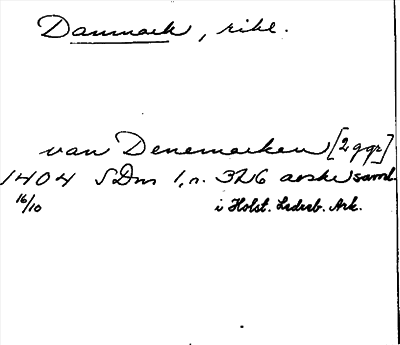 Danmark, rike.
van Denemarken [2 ggr]
1404 SDns 1, n. 326 aeske saml.
16/10 i Holst. Ledreb. Ark.